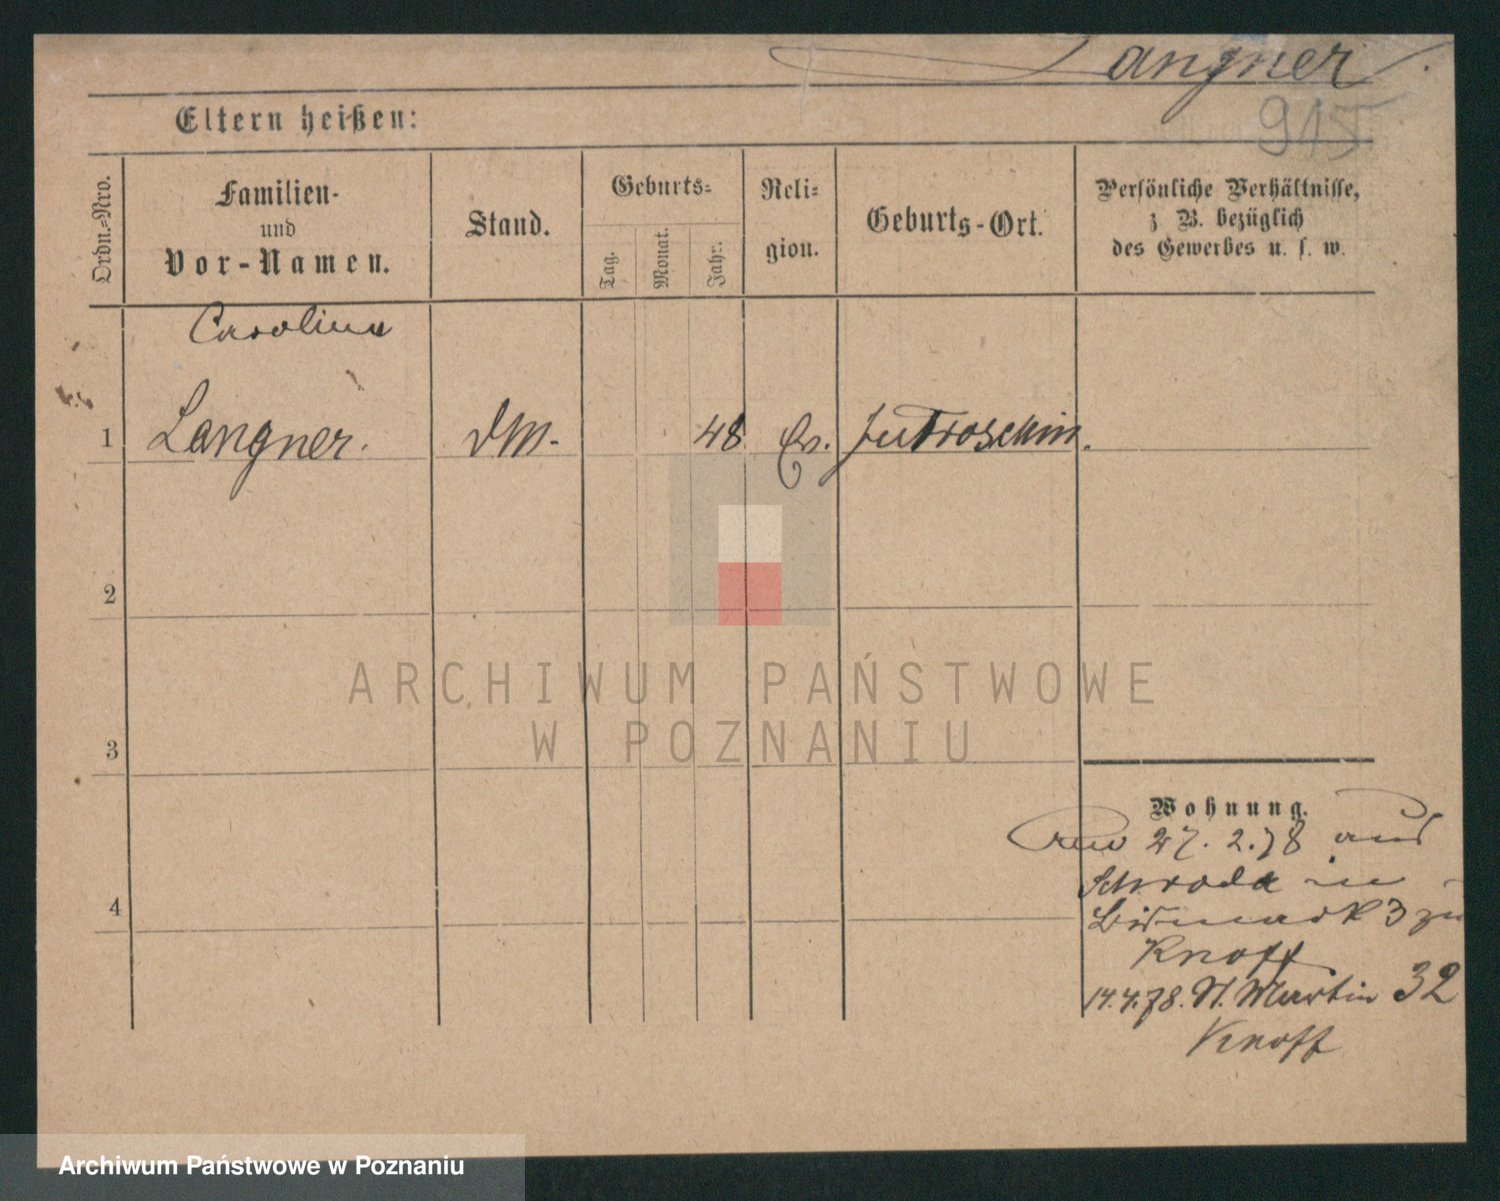 Langner
915
Eltern heißen:
Ordn.-Nro.
Familien-
und
Vor-Namen.
Stand.
Geburts-
Tag.
Monat.
Jahr.
Reli-
gion.
Geburts-Ort.
Persönliche Verhältnisse,
z B. bezüglich
des Gewerbes u. s. w.
Carolina
1 Langner. DM. 48 Ev. Jutroschin.
2
3
4
Wohnung.
27. 2. 78 aus
Schroda in
Bismark 3 zu
Knoff
14.4.78. St. Martin 32
Knoff
ARCHIWUM PAŃSTWOWE
W POZNANIU
Archiwum Państwowe w Poznaniu